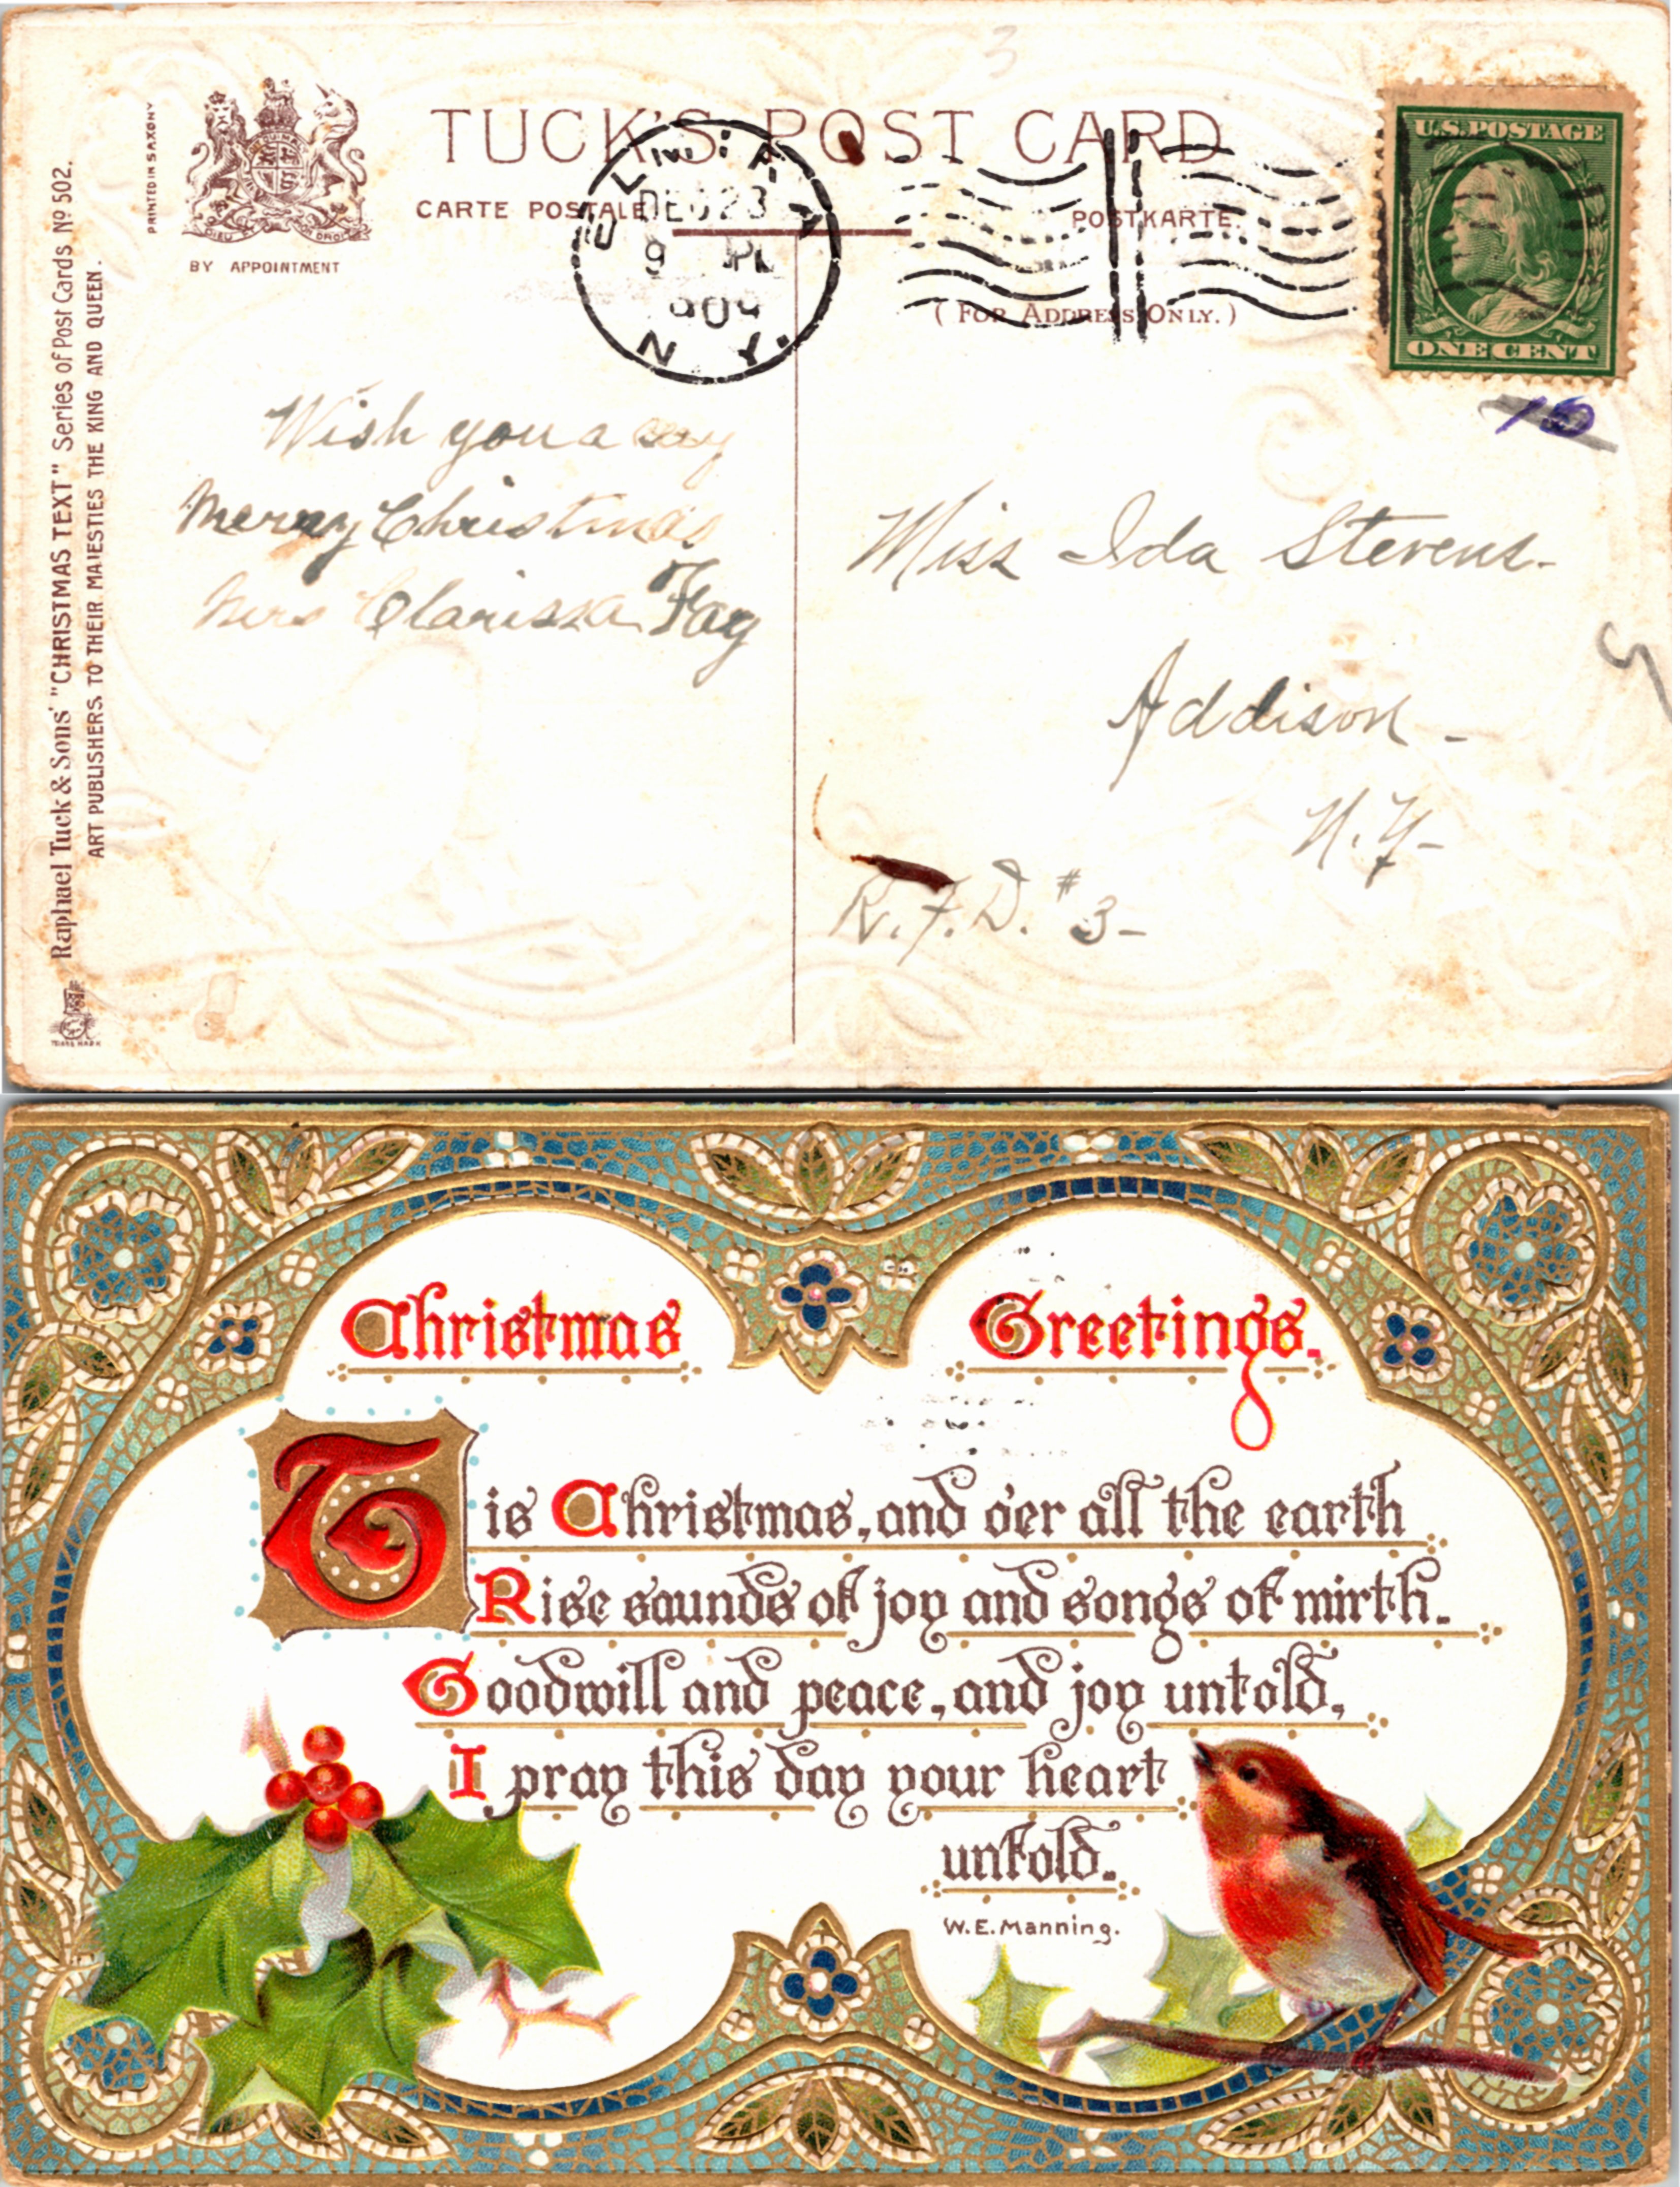 PRINTED IN SAXONY
BY APPOINTMENT
TUCK'S POST CARD
CARTE POSTALE
POSTKARTE
( FOR ADDRESS ONLY. )
ELMIRA
DEC 23
9 P
1909
N.Y.
U.S. POSTAGE
ONE CENT
10
Raphael Tuck & Sons' "CHRISTMAS TEXT" Series of Post Cards No 502.
ART PUBLISHERS TO THEIR MAJESTIES THE KING AND QUEEN.
TRADE MARK
Wish you a
Merry Christmas
Mrs Clarissa Fay
Miss Ida Stevens-
Addison-
N.Y-
R.F.D. #3-
5
3
Christmas Greetings.
Tis Christmas, and o'er all the earth
Rise sounds of joy and songs of mirth.
Goodwill and peace, and joy untold,
I pray this day your heart
unfold.
W.E. Manning.